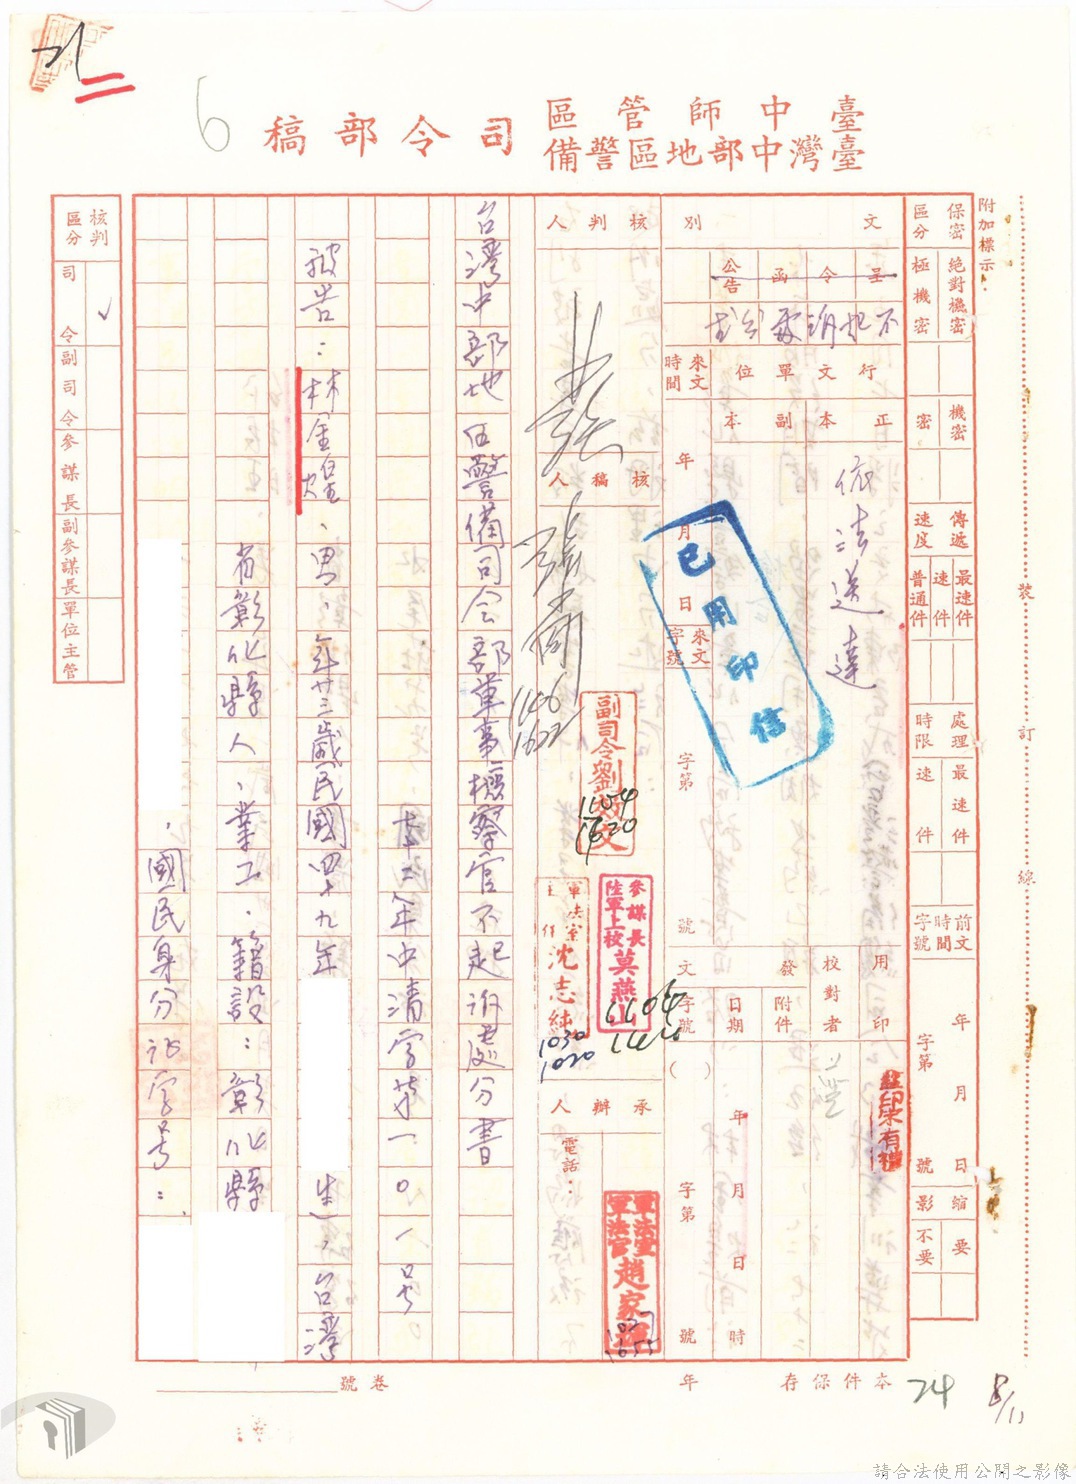 臺中師管區
臺灣中部地區警備
司令部稿
6
附加標示：
裝
訂
線
保密區分
絕對機密
極機密
機密
密
傳遞速度
最速件
速件
普通件
處理時限
最速件
速件
前文時間字號
年月日
字第號
縮影
要
不要
文別
呈
令
函
公告
不起訴處分書
行文單位
正本
副本
依法送達
來文時間
年月日
來文字號
字第號
已用印信
用印
監印宋有禮
校對者
發文
附件
日期
字號
年月日時
字第號
核判人
核稿人
副司令劉
1104
1620
參謀長
陸軍上校莫燕山
1104
沈志純
1030
1020
承辦人
電話：
軍法室
軍法官趙家
台灣中部地區警備司令部軍事檢察官不起訴處分書
七十二年中清字第一〇八号
被告：林金煌、男、年廿三歲民國四十九年
生、台灣
省彰化縣人、業工、籍設：彰化縣
、國民身分証字号：
核判區分
司令
副司令
參謀長
副參謀長
單位主管
本件保存
年
卷號
24
8/11
請合法使用公開之影像